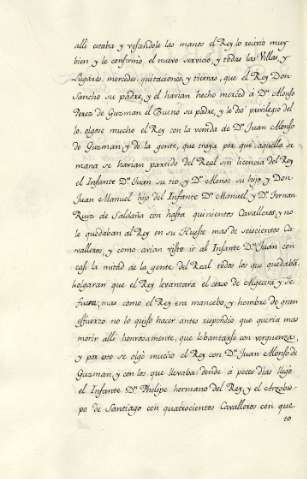 alli estaba y vesandole las manos el Rey lo recivio muy
bien y le confirmo, el nuevo servicio, y todas las Villas, y
Lugares, mercedes, quitaciones, y tierras, que el Rey Don
Sancho su padre, y el havian hecho merced à Dn. Alonso
Perez de Guzman el Bueno su padre, y le dio privilegio del
lo. olgose mucho el Rey con la venida de Dn. Juan Alonso
de Guzman, y de la gente, que traja por que aquella se
mana se havian partido del Real sin licencia del Rey
el Infante Dn. Juan su tio, y Dn. Alonso su hijo, y Don
Juan Manuel hijo del Infante Dn. Manuel, y Dn. Fernan
Ruiz de Saldaña con hasta quinientos Cavalleros, y no
le quedaban al Rey en su Hueste mas de seiscientos Ca
valleros, y como avian visto ir al Infante Dn. Juan con
casi la mitad de la gente del Real todos los que quedabā,
holgaran que el Rey levantara el cerco de Algecira y se
fuera; mas como el Rey era mancebo, y hombre de gran
esfuerzo no lo quiso hacer antes respondio que queria mas
morir alli honrosamente, que lebantarse con verguenza,
y por esto se olgó mucho el Rey con Dn. Juan Alonso de
Guzman, y con los que llevaba; donde à pocos dias llegó
el Infante Dn. Phelipe hermano del Rey, y el Arzobis-
po de Santiago con quatrocientos Cavalleros con que